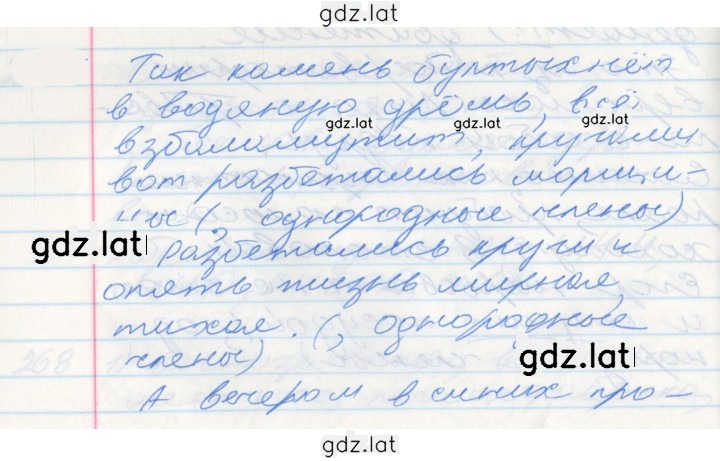 gdz.lat
Так камень бултыхнёт
в водяную дрёмь, всё
gdz.lat gdz.lat gdz.lat
взбаламутит, кругами
вот разбежались морщи-
ны (, однородные члены)
gdz.lat
Разбежались круги и
опять жизнь мирная,
тихая. (, однородные
члены)
gdz.lat
268
А вечером в синих про-
gdz.lat